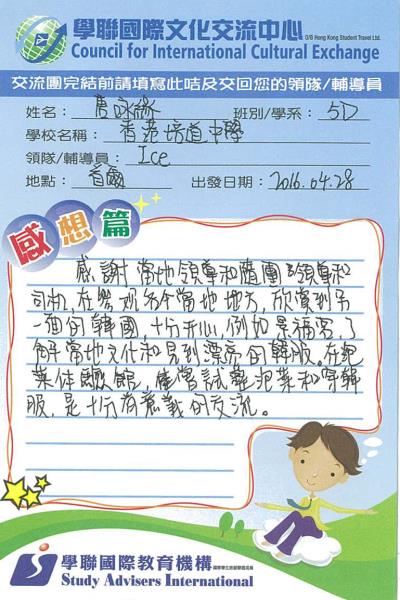 學聯國際文化交流中心
O/B Hong Kong Student Travel Ltd.
Council for International Cultural Exchange
交流團完結前請填寫此咭及交回您的領隊/輔導員
姓名: 唐詠 班別/學系: 5D
學校名稱: 香港培道中學
領隊/輔導員: Ice
地點: 首爾 出發日期: 2016.04.28
感想篇
感謝當地領導和隨團領導和
司机,在參觀當地地方,欣賞到另
一面的韓國,十分开心,例如是福客,了
解當地文化和見到漂亮的韓服。在紀
菜体驗館,能嘗試整泡菜和穿韓
服,是十分有意義的交流。
學聯國際教育機構
Study Advisers International